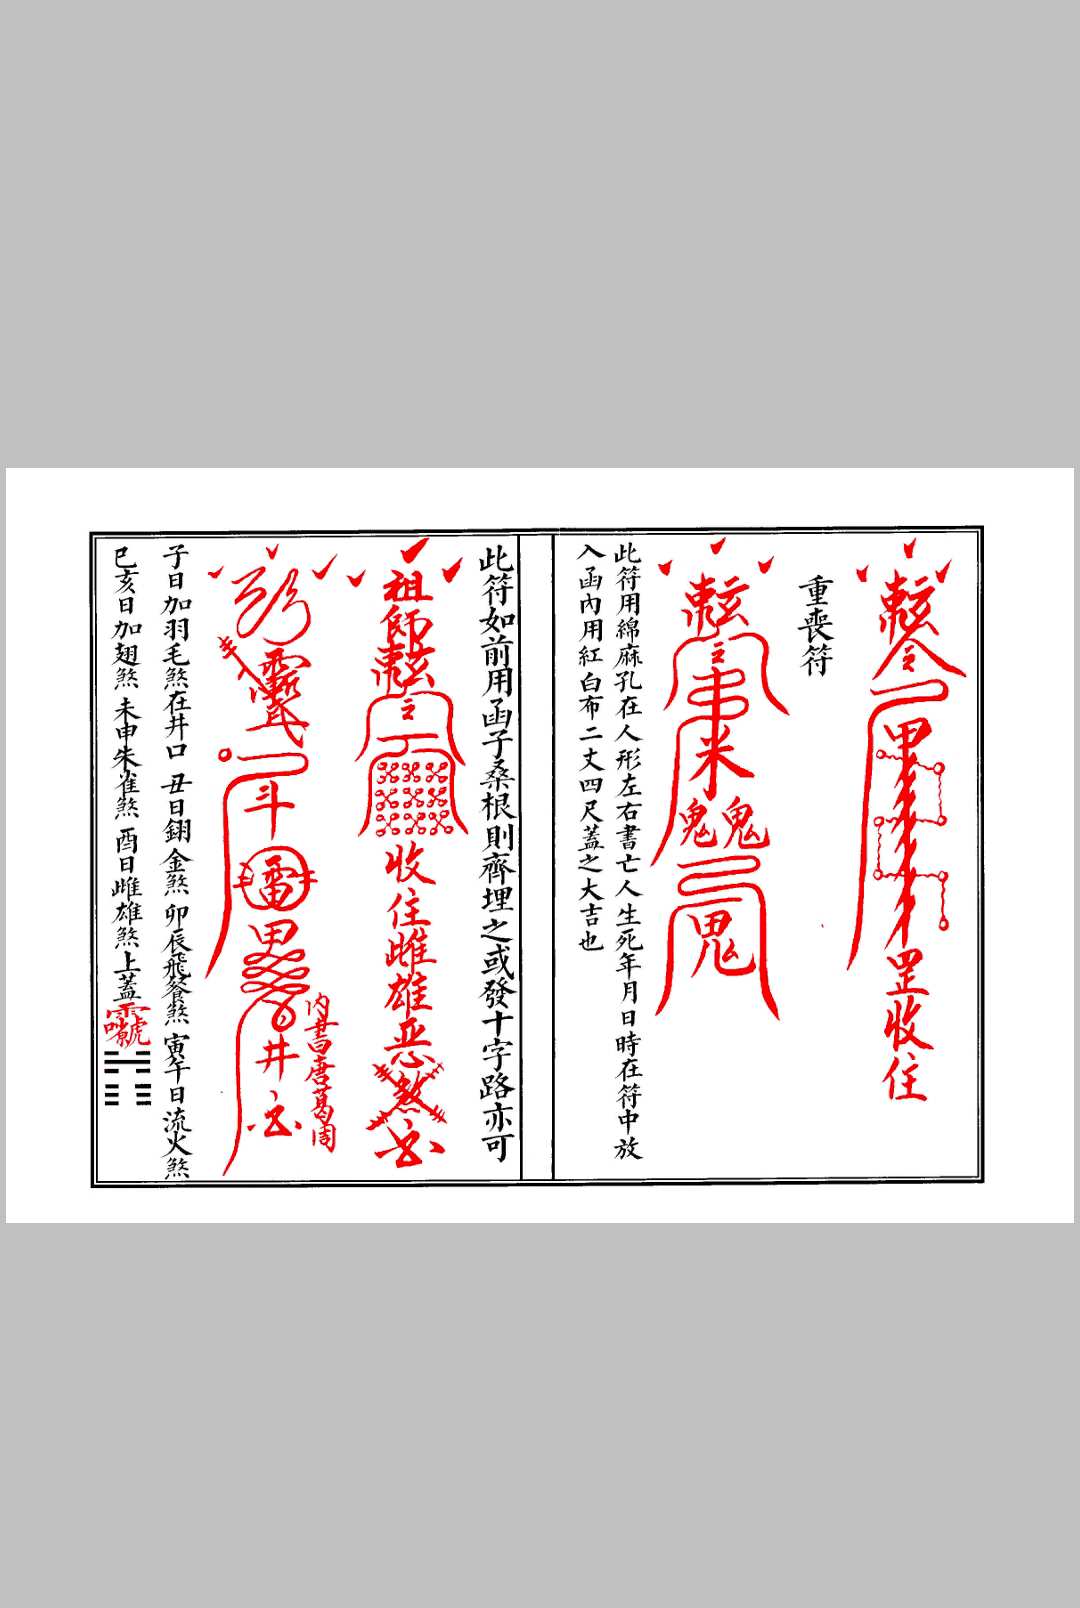 罡收住
重喪符
鬼鬼
鬼
此符用綿麻孔在人形左右書亡人生死年月日時在符中放
入函內用紅白布二丈四尺蓋之大吉也
此符如前用函子桑根則齊埋之或發十字路亦可
祖師
收住雌雄惡煞
內書唐葛周
斗
雷
井
子日加羽毛煞在井口 丑日 金煞 卯辰飛餐煞 寅午日流火煞
巳亥日加翅煞 未申朱雀煞 酉日雌雄煞上蓋